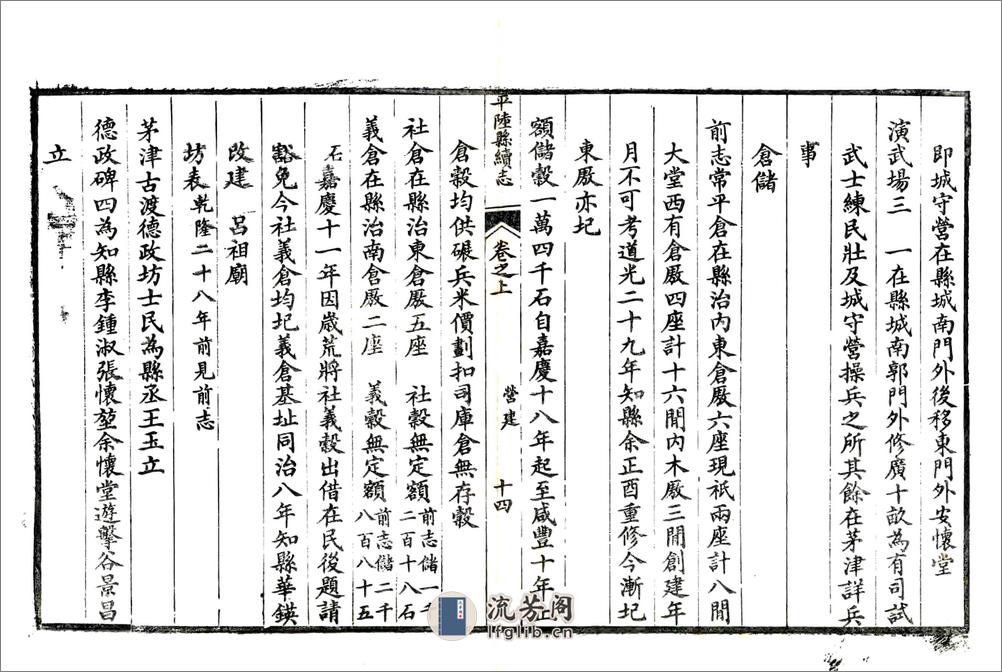 即城守營在縣城南門外後移東門外安懷堂
演武場三　一在縣城南郭門外修廣十畝為有司試
武士練民壯及城守營操兵之所其餘在茅津詳兵
事
倉儲
前志常平倉在縣治內東倉廒六座現祇兩座計八間
大堂西有倉廒四座計十六間內木廒三間創建年
月不可考道光二十九年知縣余正酉重修今漸圮
東廒亦圮
額儲穀一萬四千石自嘉慶十八年起至咸豐十年止
平陸縣續志　卷之上　營建　十四
倉穀均供碾兵米價劃扣司庫倉無存穀
社倉在縣治東倉廒五座　社穀無定額前志儲一千二百十八石
義倉在縣治南倉廒二座　義穀無定額前志儲二千八百八十五
石　嘉慶十一年因歲荒將社義穀出借在民後題請
豁免今社義倉均圮義倉基址同治八年知縣華鍈
改建　呂祖廟
坊表乾隆二十八年前見前志
茅津古渡德政坊士民為縣丞王玉立
德政碑四為知縣李鍾淑張懷堃余懷堂遊擊谷景昌
立
流芳阁
lfglib.cn